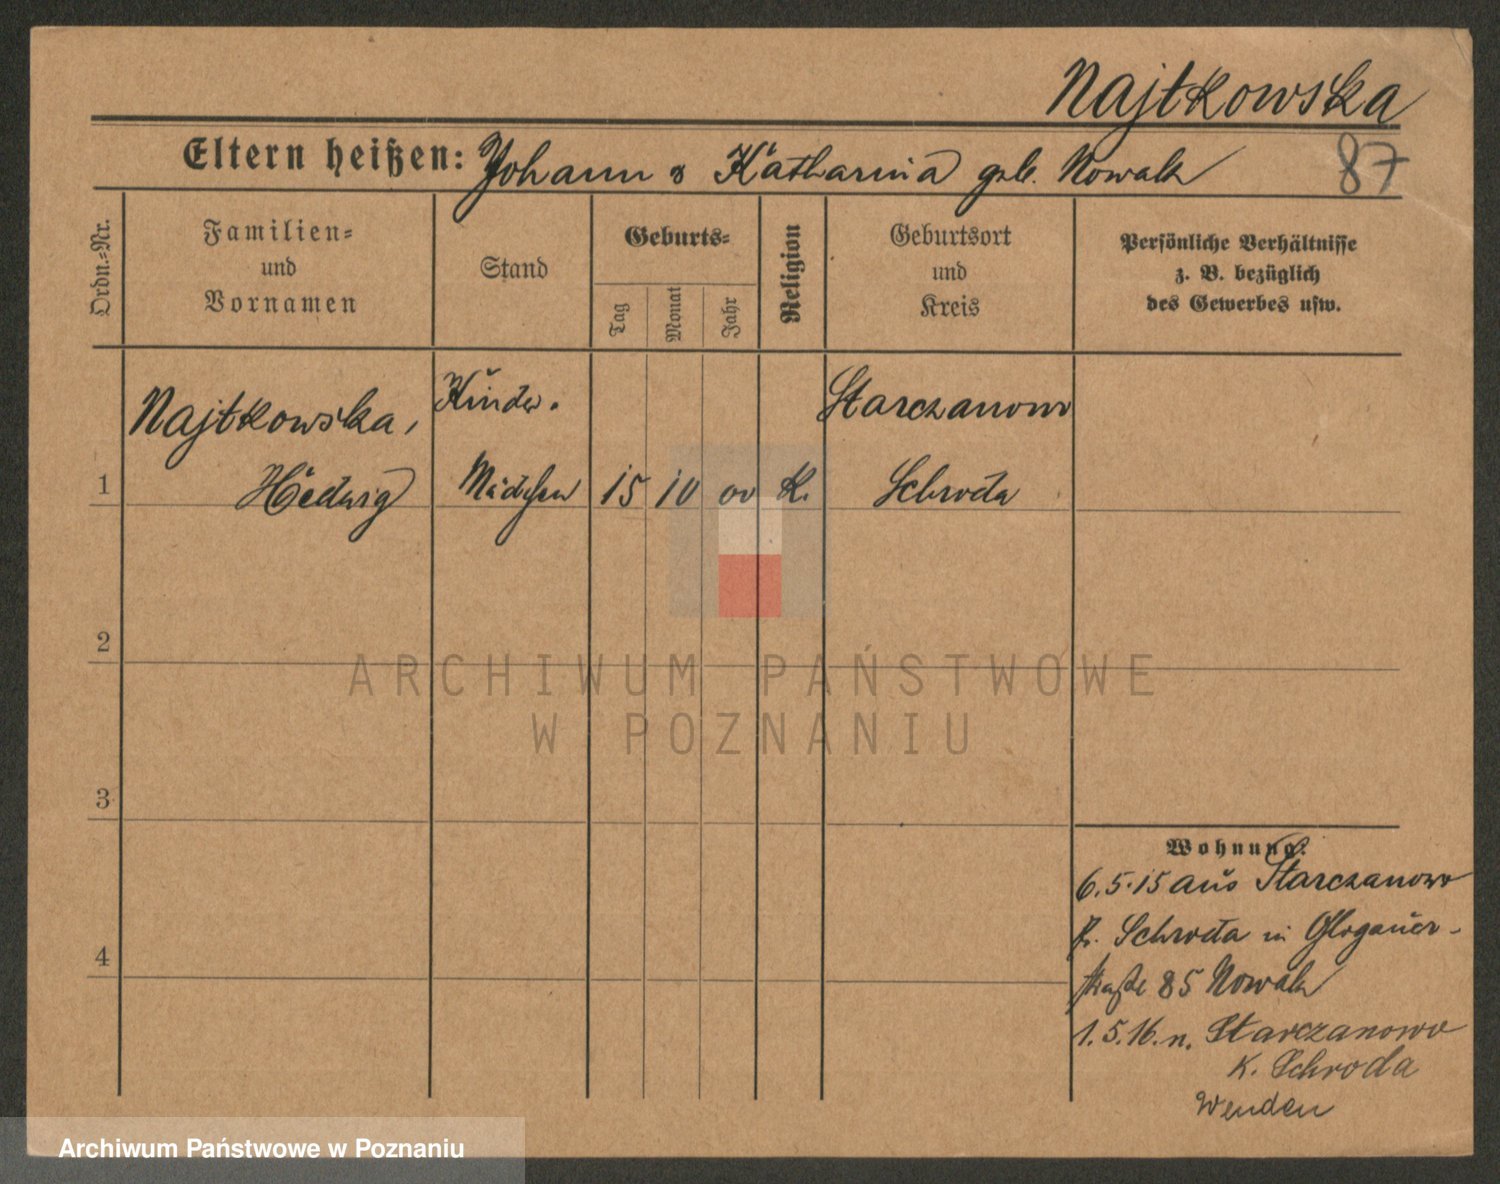 Najtkowska
87
Eltern heißen: Johann & Katharina geb. Nowak
Ordn.-Nr.
Familien-
und
Vornamen
Stand
Geburts-
Tag
Monat
Jahr
Religion
Geburtsort
und
Kreis
Persönliche Verhältnisse
z. B. bezüglich
des Gewerbes usw.
1
Najtkowska,
Hedwig
Kinder-
Mädchen
15
10
00
K.
Starczanowo
Schroda
2
3
4
Wohnung:
6.5.15 aus Starczanowo
K. Schroda in Glogauer-
straße 85 Nowak
1.5.16. n. Starczanowo
K. Schroda
Wenden
ARCHIWUM PAŃSTWOWE
W POZNANIU
Archiwum Państwowe w Poznaniu